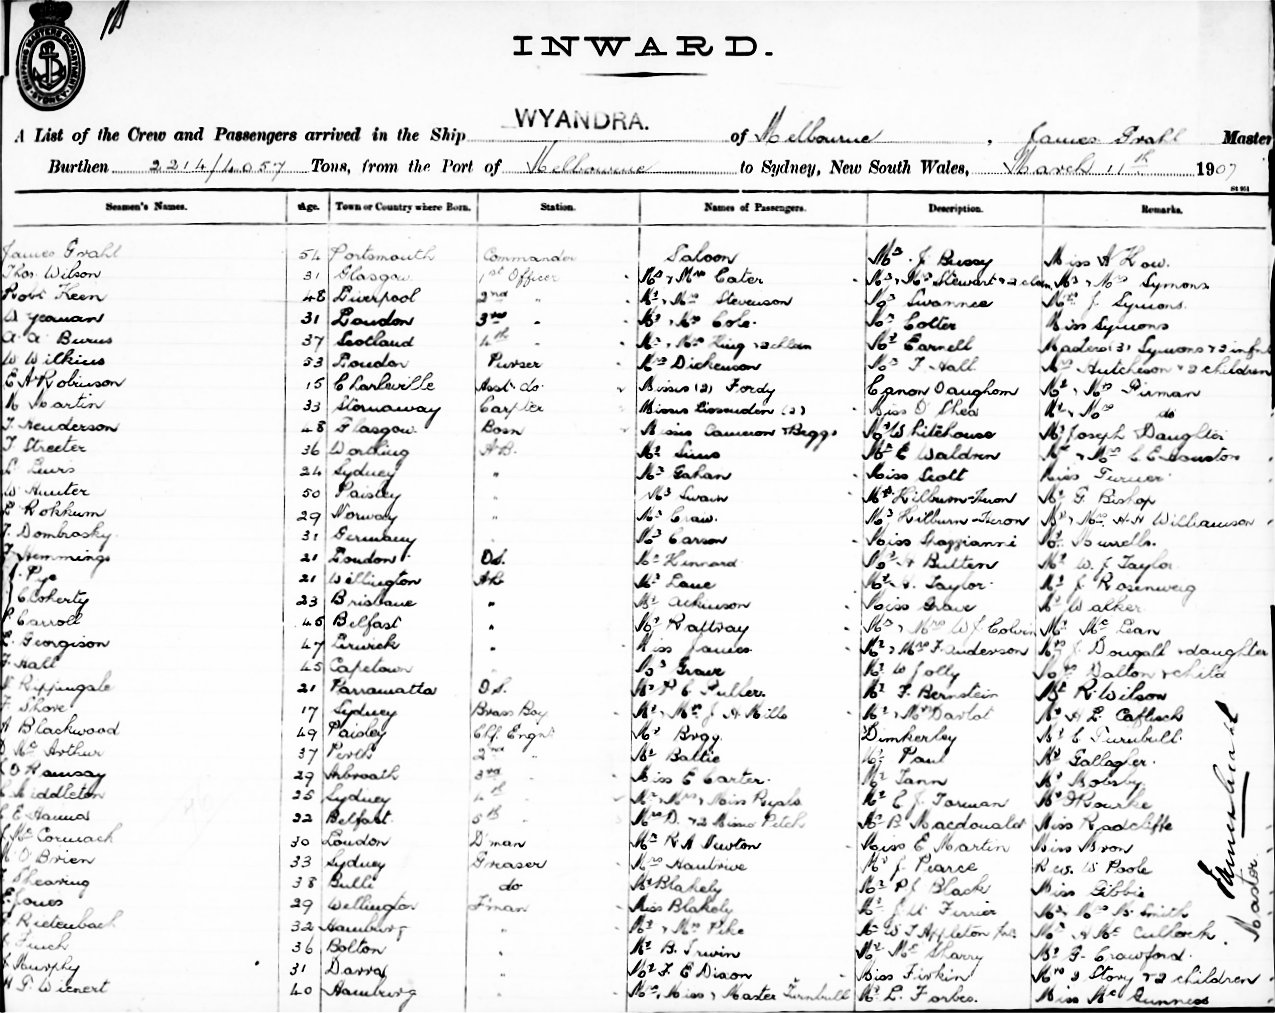 INWARD.
WYANDRA.
A List of the Crew and Passengers arrived in the Ship WYANDRA. of Melbourne, James Grahl Master
Burthen 2214/4057 Tons, from the Port of Melbourne to Sydney, New South Wales, March 11th 1907
Seamen's Names. Age. Town or Country where Born. Station. Names of Passengers. Description. Remarks.
James Grahl 54 Portsmouth Commander Saloon Mr J. Bussy Miss A How.
Thos Wilson 31 Glasgow 1st Officer Mr & Mrs Cater Mr & Mrs Stewart & 2 chln Mr & Mrs Symons
Robt Keen 48 Liverpool 2nd " Mr & Mrs Stevenson Mrs Swannee Mrs J. Symons.
W Yeoman 31 London 3rd " Mr & Mrs Cole. Mr Cotter Miss Symons
A. A. Burns 37 Scotland 4th " Mr & Mrs King & 2 chln Mr Earnell Masters (3) Symons & 2 infnt
W Wilkins 53 London Purser Mrs Dickenson Mr T. Hall Mrs Hutcheson & 2 children
E A Robinson 15 Charleville Asst do. Misses (2) Fordy Canon Vaughan Mr & Mrs Firman
M Martin 33 Stornaway Carpter Misses (2) Miss O'Shea Mr & Mrs do
T. Henderson 48 Glasgow Bosn Misses Cameron & Beggs Mr Whitehouse Mr Joseph & Daughter
T Streeter 36 Worthing A.B. Mr Sims Mr E Waldren Mr & Mrs C E
24 Sydney " Mr Gahan Miss Scott Miss Turner
W Hunter 50 Paisley " Mr Swain Mr Kilburn-Heron Mr G. Bishop
Rokkum 29 Norway " Mr Craw. Mr Kilburn-Heron Mr & Mrs H.H Williamson
T. Dombrosky 31 Germany " Mr Carson Miss Mr Burrells.
Hemmings 21 London O.S. Mr Kinnard Mr A Butten Mr W. J Taylor
J. Pye 21 Wellington AB Mr Lane Mr Taylor Mr J Rosenweig
Cloherty 23 Brisbane " Mr Atkinson Miss Grave Mr Walker
P. Carroll 45 Belfast " Mr Rattray Mr & Mrs W J Colvin Mr McLean
E. Georgison 47 Lerwick " Miss James Mr & Mrs F. Anderson Mrs J. Dougall & daughter
F. Hall 45 Capetown " Mr Grave Mr W Jolly Mrs Dalton & child
Rippingale 21 Parramatta O.S. Mr P C Puller. Mr F. Bernstein Mr R. Wilson
F. Shore 17 Sydney Brass Boy Mr & Mrs J A Mills Mr & Mrs Davlot Mr H L Caflisch
A Blackwood 49 Paisley Chf. Engnr Mr Brgy Dimkerley Mr C Turnbull
McArthur 37 Perth 2nd " Mr Battie Mr Paul Mr Gallagher.
O Ramsay 29 Arbroath 3rd Miss E Carter. Mr Tann Mr Mobsby
Middleton 25 Sydney 4th " Mr, Mrs & Miss Ryals Mr E. J. Forman Mr O'Rourke
E Hanna 22 Belfast 5th " Mrs D. & 2 Misses Petch Mr B. Macdonald Miss Radcliffe
McCormack 30 London D'man Mr R A Newton Miss E Martin Miss Bron
O'Brien 33 Sydney Greaser Mrs Mr J. Pearce Rev. W Poole
Shearing 38 Bulli do Mr Blakely Mr P J. Black Miss Gibbie
E. Jones 29 Wellington F'man Miss Blakely Mr J. W. Ferrier Mr & Mrs B. Smith
Rietenbach 32 Hamburg " Mr & Mrs Pike Mr W T Appleton Jnr. Mrs A McCulloch
Finch 36 Bolton " Mr B. Irwin Mr McSharry Mr G. Crawford.
Murphy 31 Darra " Mr F. E Dixon Miss Firkin Mrs Story & 2 children
H P. Wienert 40 Hamburg " Mrs, Miss & Master Turnbull Mr L. Forbes. Miss McGuinness
James Grahl
Master.